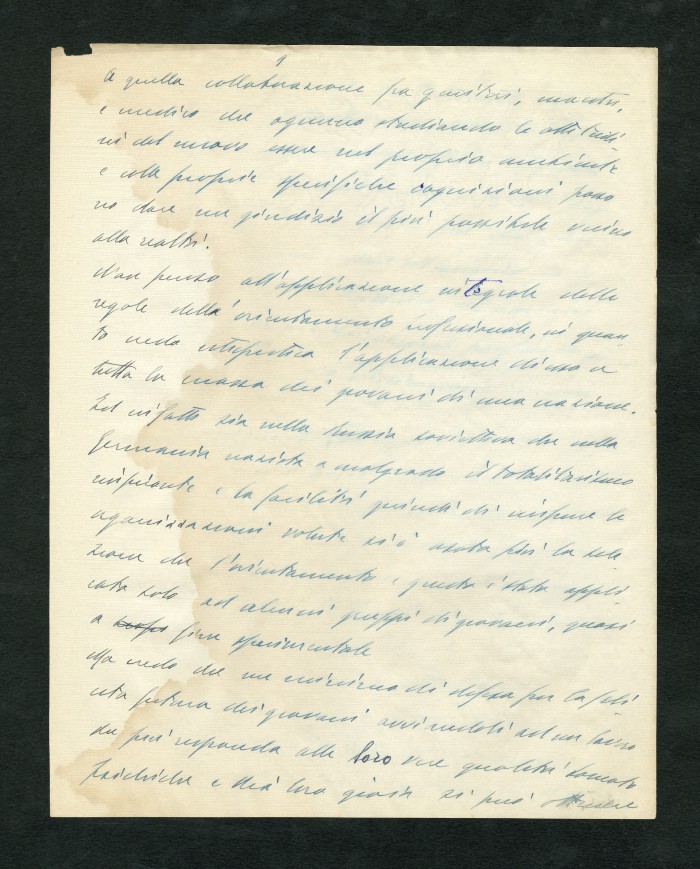 A quella collaborazione fra genitori, maestri,
e medico che ognuno studiando le attitudi
ni del nuovo essere nel proprio ambiente
e colle proprie specifiche cognizioni posso
no dare un giudizio il più possibile vicino
alla realtà.
Non penso all'applicazione integrale delle
regole dell'orientamento professionale, né quan
to meno l'applicazione di esso a
tutta la massa dei giovani di una nazione.
Ed infatti sia nella Russia sovietica che nella
Germania nazista e malgrado il totalitarismo
imperante e la facilità quindi di imporre le
organizzazioni volute si è usata più la sele
zione che l'orientamento e questo è stato appli
cato solo ad alcuni gruppi di giovani, quasi
a scopo fine sperimentale
Ma credo che un minimo di difesa per la feli
cità futura dei giovani avviandoli ad un lavoro
che più risponda alle loro vere qualità somato
psichiche e che loro giovi si può ottenere